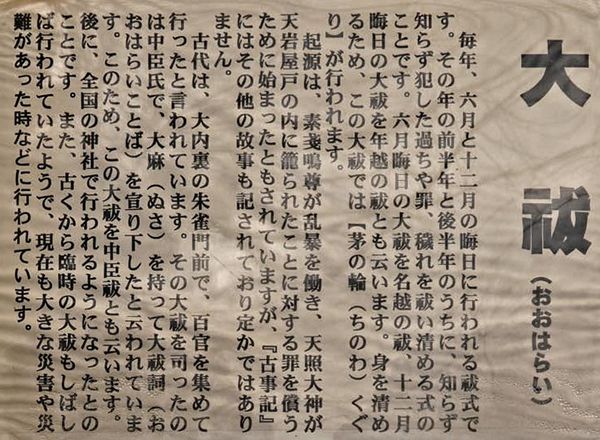 大祓(おおはらい)
毎年、六月と十二月の晦日に行われる祓式で
す。その年の前半年と後半年のうちに、知らず
知らず犯した過ちや罪、穢れを祓い清める式の
ことです。六月晦日の大祓を名越の祓、十二月
晦日の大祓を年越の祓とも云います。身を清め
るため、この大祓では【茅の輪(ちのわ)くぐ
り】が行われます。
起源は、素戔嗚尊が乱暴を働き、天照大神が
天岩屋戸の内に籠られたことに対する罪を償う
ために始まったともされていますが、『古事記』
にはその他の故事も記されており定かではあり
ません。
古代は、大内裏の朱雀門前で、百官を集めて
行ったと言われています。その大祓を司ったの
は中臣氏で、大麻(ぬさ)を持って大祓詞(お
おはらいことば)を宣り下したと云われていま
す。このため、この大祓を中臣祓とも云います。
後に、全国の神社で行われるようになったとの
ことです。また、古くから臨時の大祓もしばし
ば行われていたようで、現在も大きな災害や災
難があった時などに行われています。